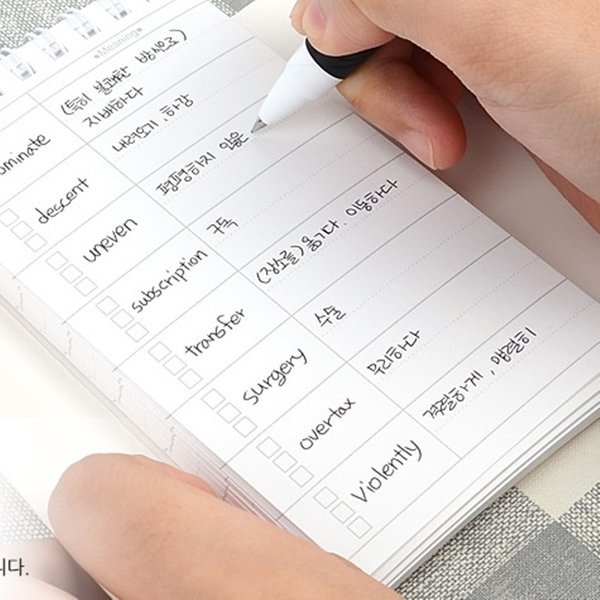 *Meaning*
ominate (특히 불쾌한 방식으로)
지배하다
descent 내려오기, 하강
uneven 평평하지 않은
subscription 구독
transfer (장소를) 옮기다. 이동하다
surgery 수술
overtax 무리하다
Violently 격렬하게, 맹렬히
니다.